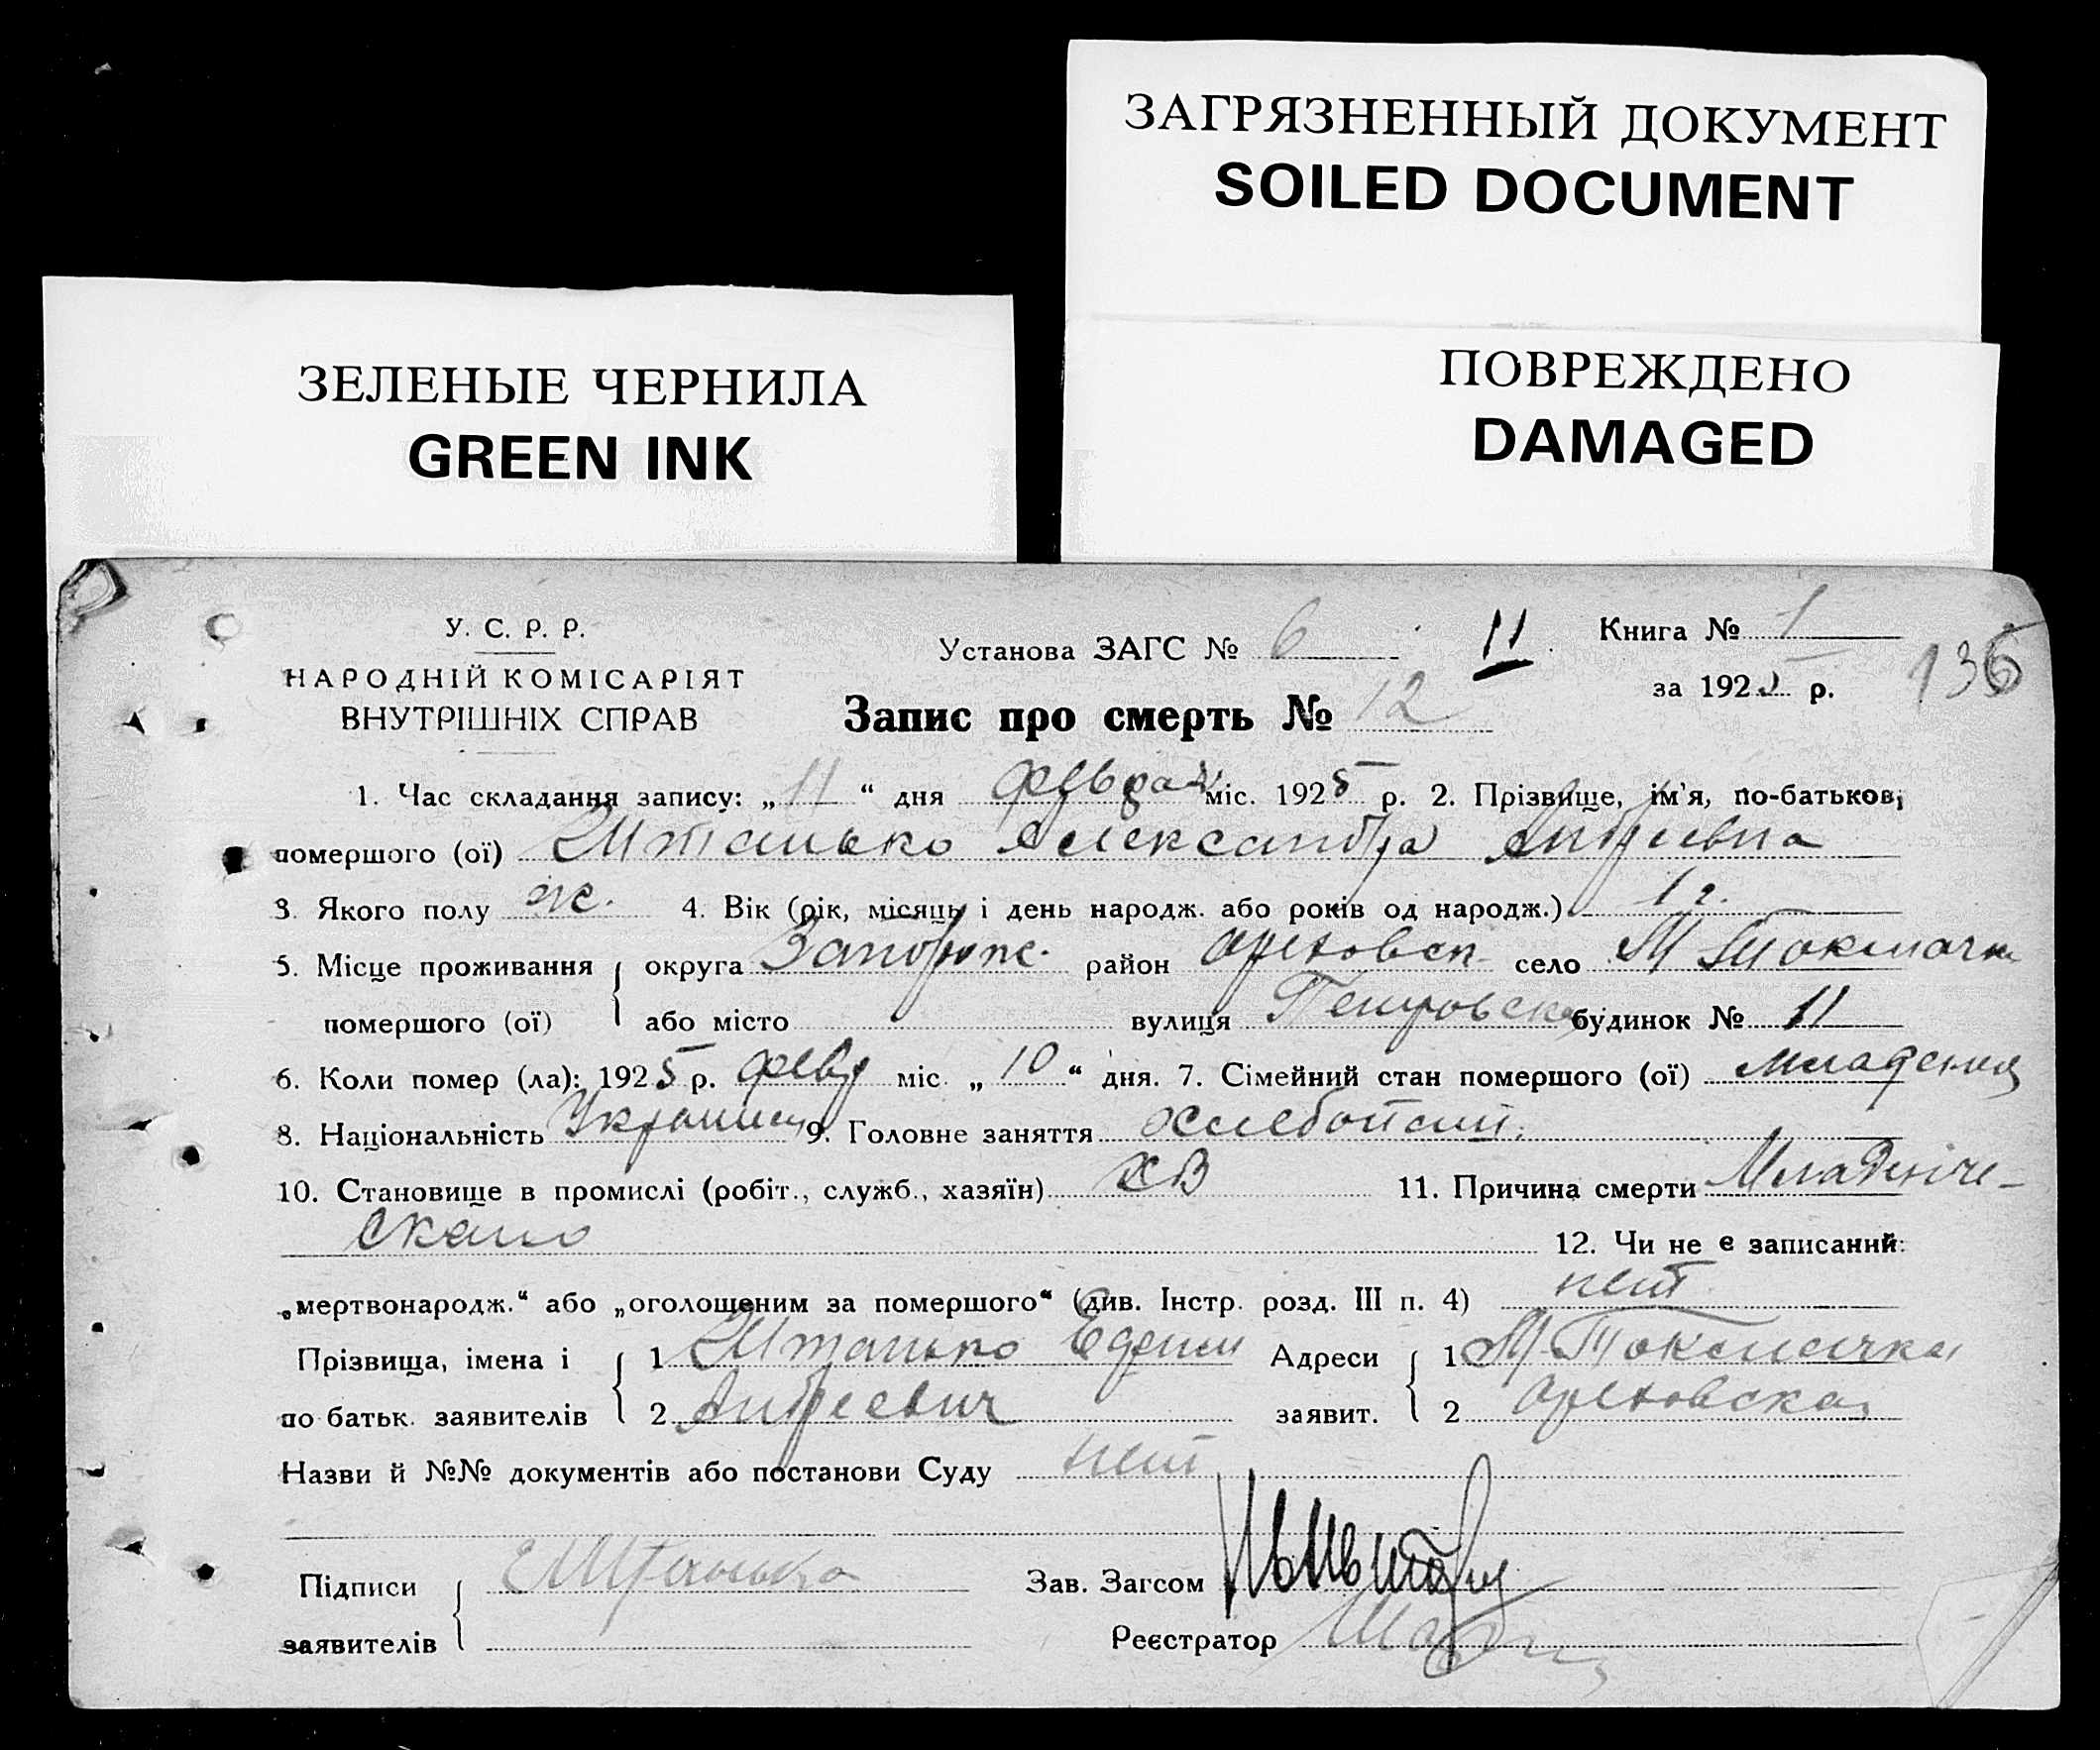 ЗАГРЯЗНЕННЫЙ ДОКУМЕНТ
SOILED DOCUMENT
ПОВРЕЖДЕНО
DAMAGED
ЗЕЛЕНЫЕ ЧЕРНИЛА
GREEN INK
У. С. Р. Р.
НАРОДНІЙ КОМІСАРІЯТ
ВНУТРІШНІХ СПРАВ
Установа ЗАГС № 6
11
Книга № 1
за 1925 р.
136
Запис про смерть № 12
1. Час складання запису: „11“ дня міс. 1925 р. 2. Прізвище, ім'я, по-батькові
помершого (ої) Штанько Александра Андреевна
3. Якого полу ж. 4. Вік (рік, місяць і день народж. або років од народж.) 1 г.
5. Місце проживання округа Запорож. район Ореховск. село М Токмачк
помершого (ої) або місто вулиця Петровска будинок № 11
6. Коли помер (ла): 1925 р. февр міс. „10“ дня. 7. Сімейний стан помершого (ої) младенец
8. Національність Украинец 9. Головне заняття хлебопаш.
10. Становище в промислі (робіт., служб., хазяїн) ХВ 11. Причина смерти Младенче-
ская 12. Чи не є записаний:
„мертвонародж.“ або „оголошеним за помершого“ (див. Інстр. розд. III п. 4) нет
Прізвища, імена і 1 Штанько Адреси 1 М-Токмачка
по батьк. заявителів 2 Андреевич заявит. 2 Ореховска
Назви й №№ документів або постанови Суду нет
Підписи Е Штанько Зав. Загсом
заявителів Реєстратор